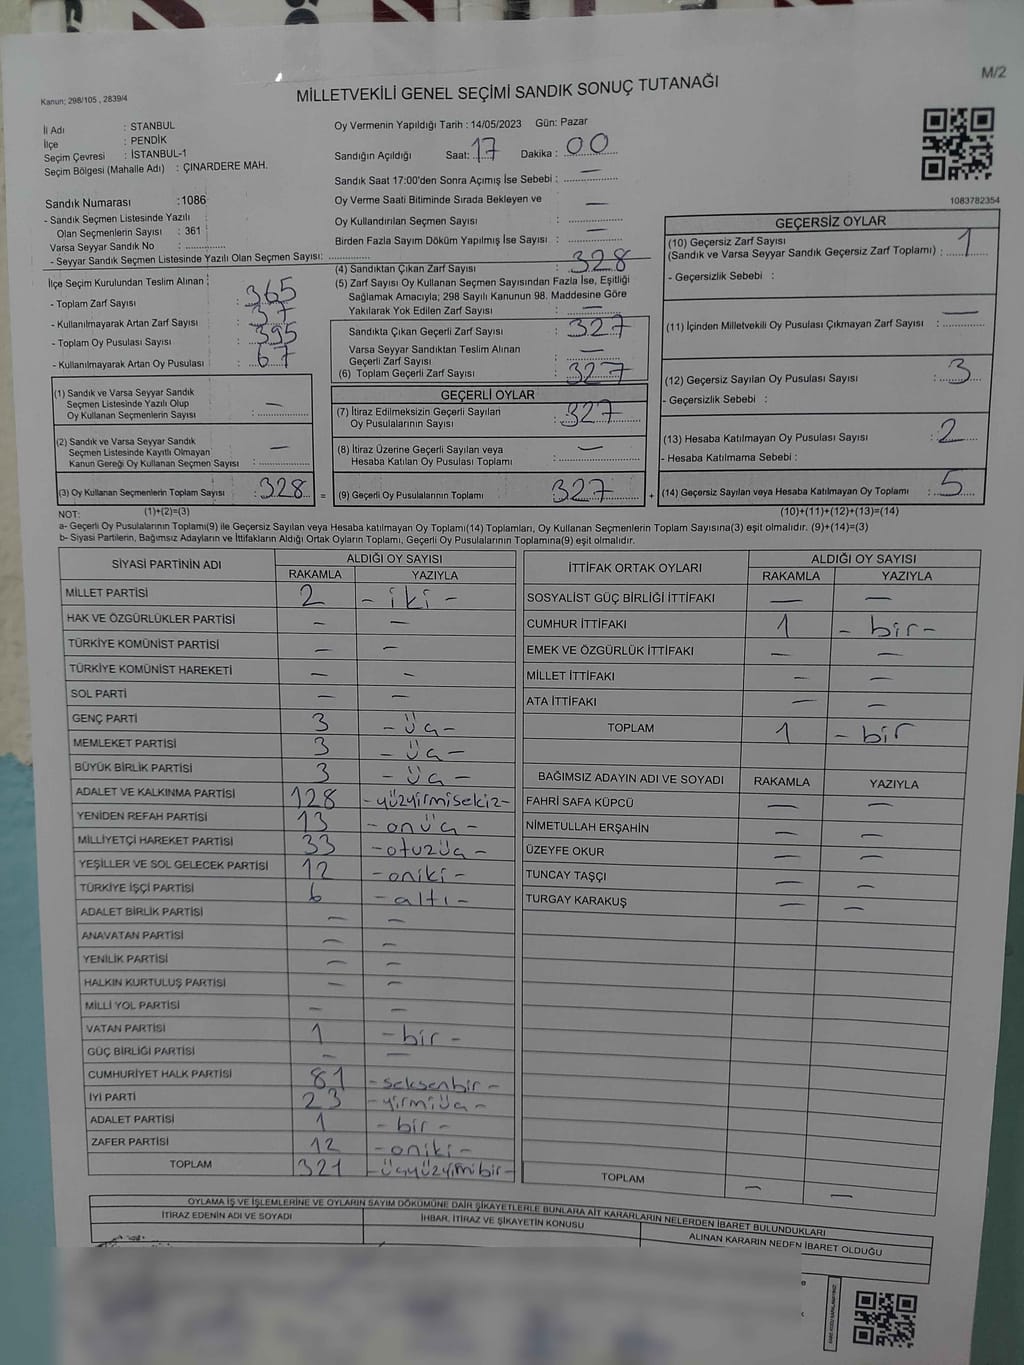 M/2
Kanun; 298/105 , 2839/4
MİLLETVEKİLİ GENEL SEÇİMİ SANDIK SONUÇ TUTANAĞI
İl Adı : STANBUL
İlçe : PENDİK
Seçim Çevresi : İSTANBUL-1
Seçim Bölgesi (Mahalle Adı) : ÇINARDERE MAH.
Oy Vermenin Yapıldığı Tarih : 14/05/2023 Gün: Pazar
Sandığın Açıldığı Saat: 17 Dakika : 00
Sandık Saat 17:00'den Sonra Açımış İse Sebebi : —
Oy Verme Saati Bitiminde Sırada Bekleyen ve
Oy Kullandırılan Seçmen Sayısı : —
Birden Fazla Sayım Döküm Yapılmış İse Sayısı : —
1083782354
Sandık Numarası : 1086
- Sandık Seçmen Listesinde Yazılı
Olan Seçmenlerin Sayısı : 361
Varsa Seyyar Sandık No :
- Seyyar Sandık Seçmen Listesinde Yazılı Olan Seçmen Sayısı:
İlçe Seçim Kurulundan Teslim Alınan ;
- Toplam Zarf Sayısı : 365
- Kullanılmayarak Artan Zarf Sayısı : 37
- Toplam Oy Pusulası Sayısı : 395
- Kullanılmayarak Artan Oy Pusulası : 67
(1) Sandık ve Varsa Seyyar Sandık
Seçmen Listesinde Yazılı Olup
Oy Kullanan Seçmenlerin Sayısı : —
(2) Sandık ve Varsa Seyyar Sandık
Seçmen Listesinde Kayıtlı Olmayan
Kanun Gereği Oy Kullanan Seçmen Sayısı : —
(3) Oy Kullanan Seçmenlerin Toplam Sayısı : 328 =
(4) Sandıktan Çıkan Zarf Sayısı : 328
(5) Zarf Sayısı Oy Kullanan Seçmen Sayısından Fazla İse, Eşitliği
Sağlamak Amacıyla; 298 Sayılı Kanunun 98. Maddesine Göre
Yakılarak Yok Edilen Zarf Sayısı : —
Sandıkta Çıkan Geçerli Zarf Sayısı : 327
Varsa Seyyar Sandıktan Teslim Alınan
Geçerli Zarf Sayısı : —
(6) Toplam Geçerli Zarf Sayısı : 327
GEÇERLİ OYLAR
(7) İtiraz Edilmeksizin Geçerli Sayılan
Oy Pusulalarının Sayısı : 327
(8) İtiraz Üzerine Geçerli Sayılan veya
Hesaba Katılan Oy Pusulası Toplamı : —
(9) Geçerli Oy Pusulalarının Toplamı : 327 +
GEÇERSİZ OYLAR
(10) Geçersiz Zarf Sayısı
(Sandık ve Varsa Seyyar Sandık Geçersiz Zarf Toplamı) : 1
- Geçersizlik Sebebi :
(11) İçinden Milletvekili Oy Pusulası Çıkmayan Zarf Sayısı : —
(12) Geçersiz Sayılan Oy Pusulası Sayısı : 3
- Geçersizlik Sebebi :
(13) Hesaba Katılmayan Oy Pusulası Sayısı : 2
- Hesaba Katılmama Sebebi :
(14) Geçersiz Sayılan veya Hesaba Katılmayan Oy Toplamı : 5
NOT: (1)+(2)=(3) (10)+(11)+(12)+(13)=(14)
a- Geçerli Oy Pusulalarının Toplamı(9) ile Geçersiz Sayılan veya Hesaba katılmayan Oy Toplamı(14) Toplamları, Oy Kullanan Seçmenlerin Toplam Sayısına(3) eşit olmalıdır. (9)+(14)=(3)
b- Siyasi Partilerin, Bağımsız Adayların ve İttifakların Aldığı Ortak Oyların Toplamı, Geçerli Oy Pusulalarının Toplamına(9) eşit olmalıdır.
SİYASİ PARTİNİN ADI ALDIĞI OY SAYISI
RAKAMLA YAZIYLA
MİLLET PARTİSİ 2 - iki -
HAK VE ÖZGÜRLÜKLER PARTİSİ — —
TÜRKİYE KOMÜNİST PARTİSİ — —
TÜRKİYE KOMÜNİST HAREKETİ — —
SOL PARTİ — —
GENÇ PARTİ 3 - üç -
MEMLEKET PARTİSİ 3 - üç -
BÜYÜK BİRLİK PARTİSİ 3 - üç -
ADALET VE KALKINMA PARTİSİ 128 -yüzyirmisekiz-
YENİDEN REFAH PARTİSİ 13 - onüç -
MİLLİYETÇİ HAREKET PARTİSİ 33 - otuzüç -
YEŞİLLER VE SOL GELECEK PARTİSİ 12 - oniki -
TÜRKİYE İŞÇİ PARTİSİ 6 - altı -
ADALET BİRLİK PARTİSİ — —
ANAVATAN PARTİSİ — —
YENİLİK PARTİSİ — —
HALKIN KURTULUŞ PARTİSİ — —
MİLLİ YOL PARTİSİ — —
VATAN PARTİSİ 1 - bir -
GÜÇ BİRLİĞİ PARTİSİ — —
CUMHURİYET HALK PARTİSİ 81 - seksenbir -
İYİ PARTİ 23 - yirmiüç -
ADALET PARTİSİ 1 - bir -
ZAFER PARTİSİ 12 - oniki -
TOPLAM 321 - üçyüzyirmibir -
İTTİFAK ORTAK OYLARI ALDIĞI OY SAYISI
RAKAMLA YAZIYLA
SOSYALİST GÜÇ BİRLİĞİ İTTİFAKI — —
CUMHUR İTTİFAKI 1 - bir -
EMEK VE ÖZGÜRLÜK İTTİFAKI — —
MİLLET İTTİFAKI — —
ATA İTTİFAKI — —
TOPLAM 1 - bir
BAĞIMSIZ ADAYIN ADI VE SOYADI RAKAMLA YAZIYLA
FAHRİ SAFA KÜPCÜ — —
NİMETULLAH ERŞAHİN — —
ÜZEYFE OKUR — —
TUNCAY TAŞÇI — —
TURGAY KARAKUŞ — —
TOPLAM — —
OYLAMA İŞ VE İŞLEMLERİNE VE OYLARIN SAYIM DÖKÜMÜNE DAİR ŞİKAYETLERLE BUNLARA AİT KARARLARIN NELERDEN İBARET BULUNDUKLARI
İTİRAZ EDENİN ADI VE SOYADI İHBAR, İTİRAZ VE ŞİKAYETİN KONUSU ALINAN KARARIN NEDEN İBARET OLDUĞU